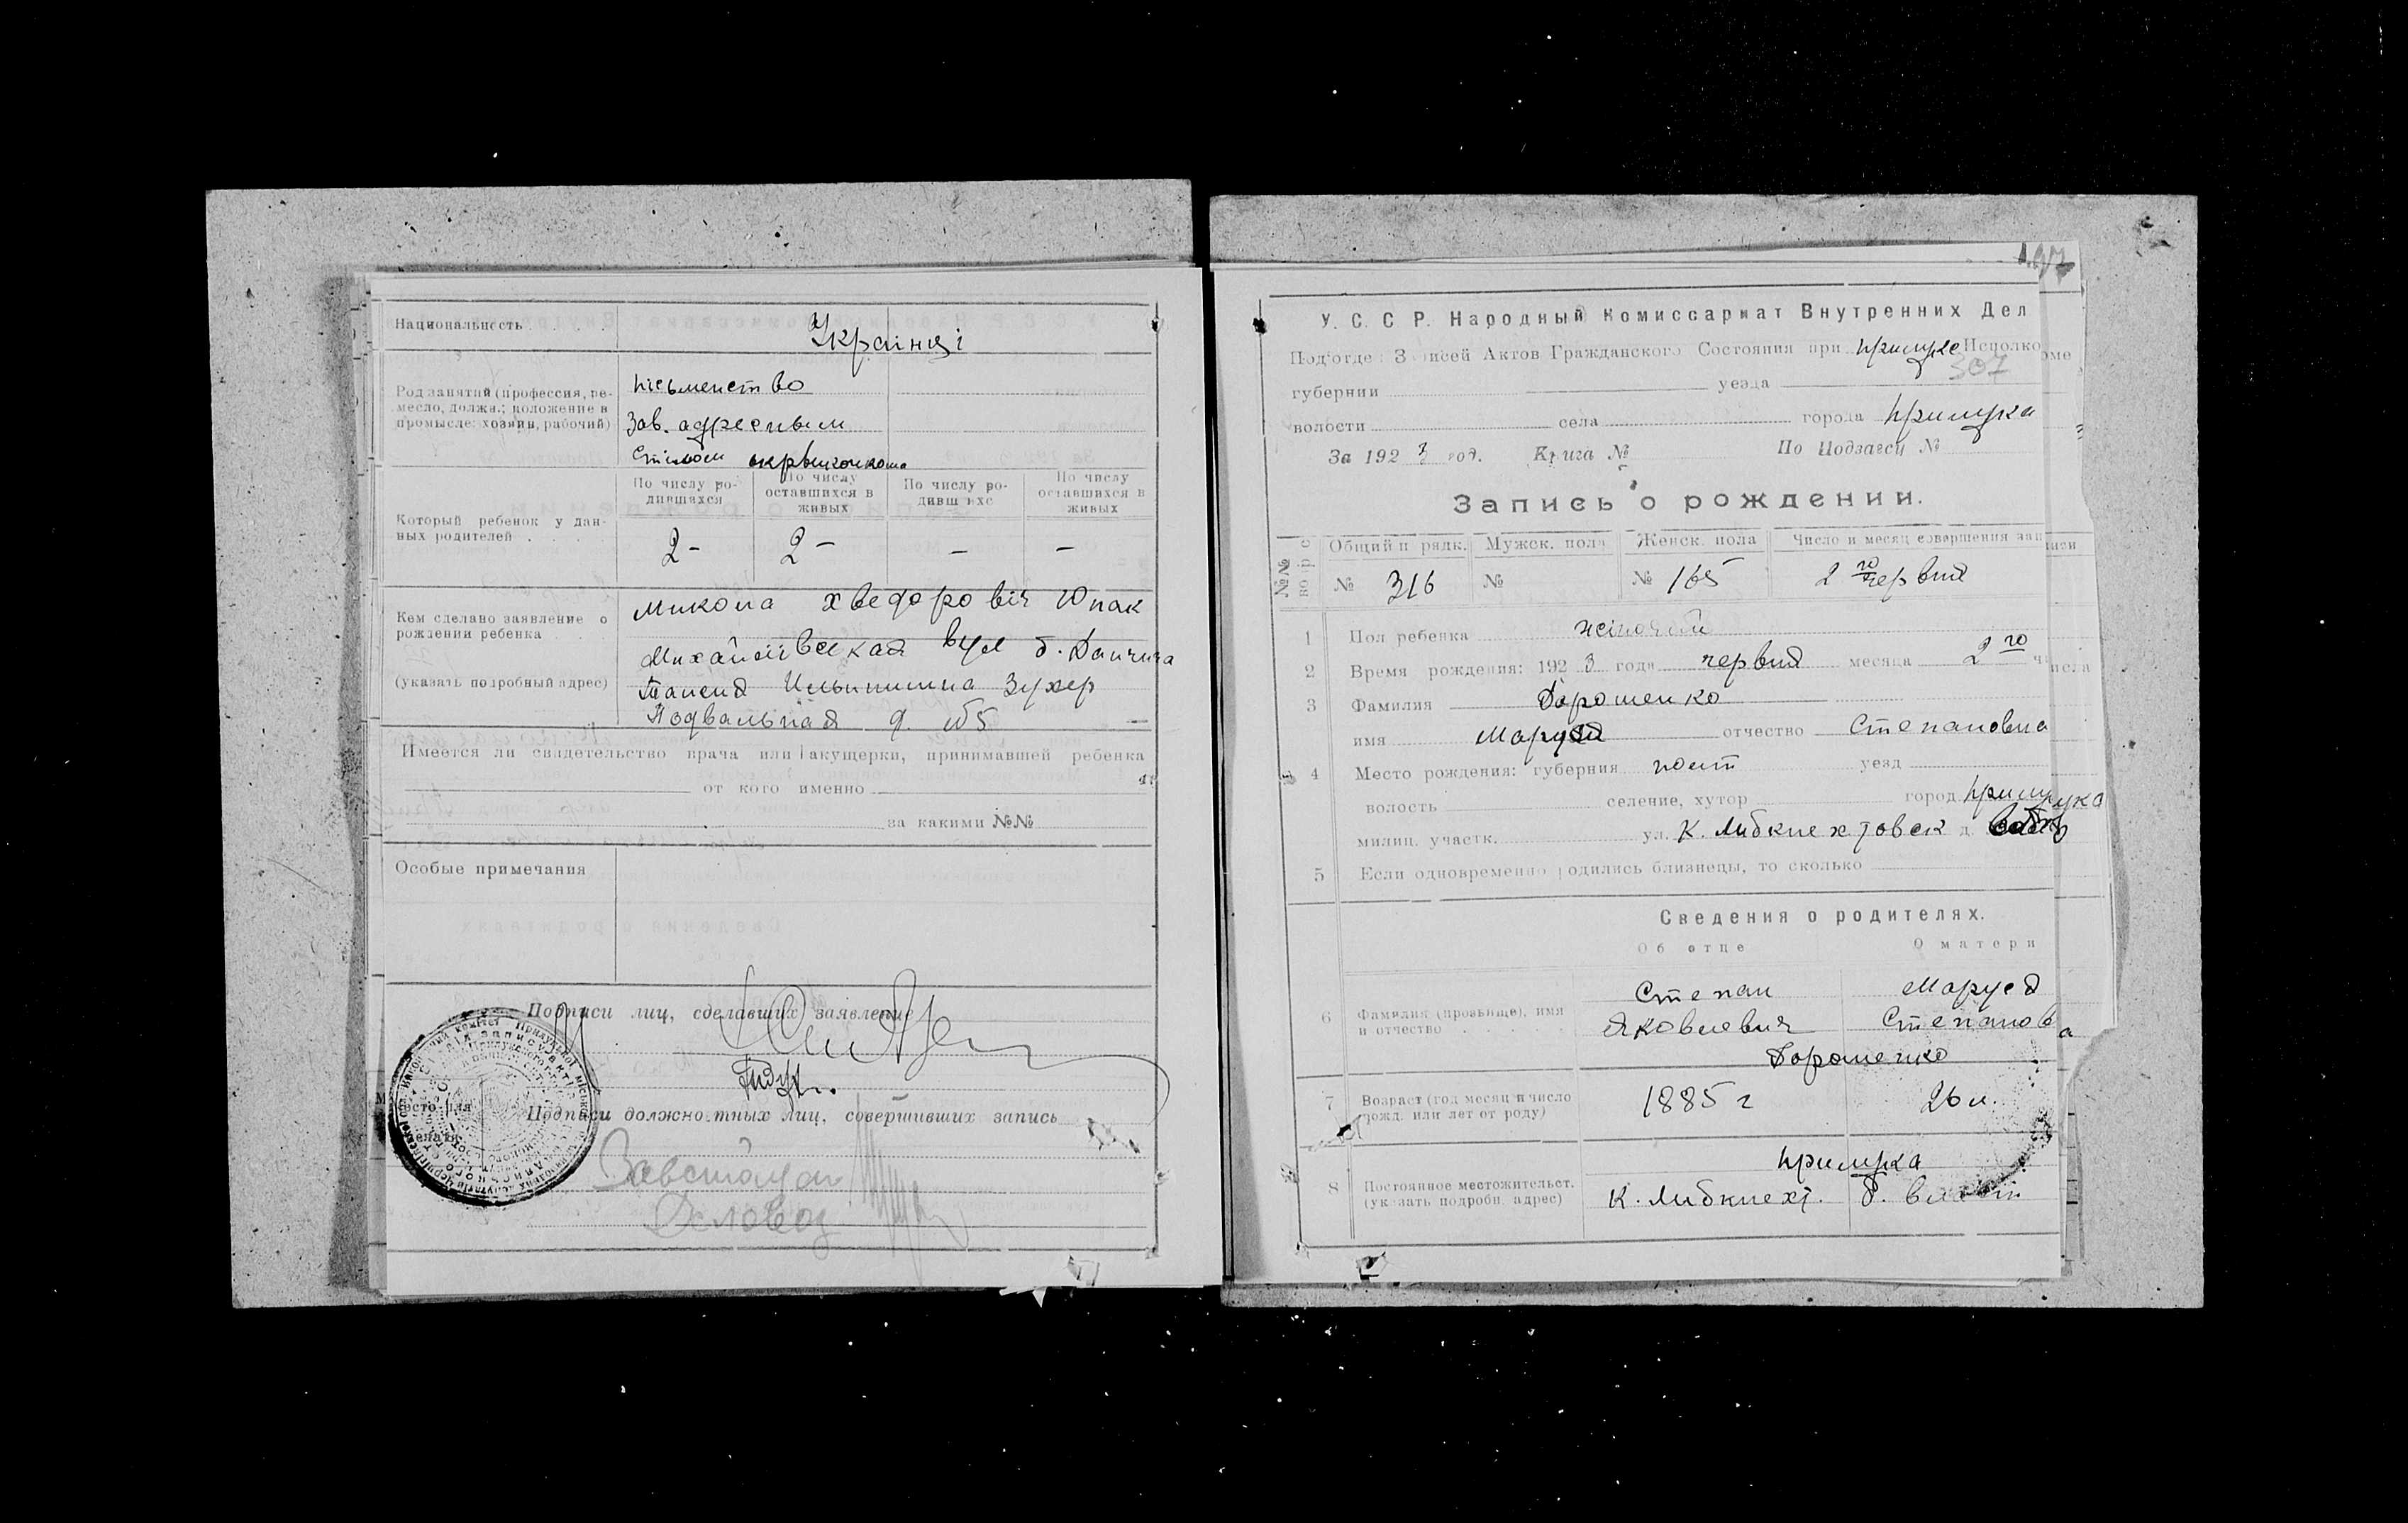 Национальность
Українці
Род занятий (профессия, ре-
месло, должн.; положение в
промысле: хозяин, рабочий)
письменство
Зав. адресным
столом
Который ребенок у дан-
ных родителей
По числу ро-
дившихся
По числу
оставшихся в
живых
По числу ро-
дившихся
По числу
оставшихся в
живых
2 - 2 - - -
Кем сделано заявление о
рождении ребенка
(указать подробный адрес)
Микола Хведорович Юпак
Михайлівская вул д.
Ильинишна Зухер
Подвальная д. №5
Имеется ли свидетельство врача или акушерки, принимавшей ребенка
от кого именно
за какими №№
Особые примечания
Подписи лиц, сделавших заявление
Подписи должностных лиц, совершивших запись
Место для
печати
Завстолом
197
У. С. С. Р. Народный Комиссариат Внутренних Дел
Подотдел Записей Актов Гражданского Состояния при Прилуке Исполко
307
губернии уезда
волости села города Прилука
За 1923 год. Книга № По Подзагсу №
Запись о рождении.
Общий п рядк. Мужск. пола Женск. пола Число и месяц совершения зап
№ 316 № № 165 2го червня
1 Пол ребенка жіночий
2 Время рождения: 1923 года червня месяца 2го числа
3 Фамилия Дорошенко
имя Маруся отчество Степановна
4 Место рождения: губерния полт уезд
волость селение, хутор город Прилука
милиц. участк. ул. К. Либкнехтовск д.
5 Если одновременно родились близнецы, то сколько
Сведения о родителях.
Об отце О матери
6 Фамилия (прозвище), имя
и отчество
Степан Маруся
Яковлевич Степанова
Дорошенко
7 Возраст (год месяц и число
рожд. или лет от роду)
1885 г 26 л.
8 Постоянное местожительст.
(указать подробн. адрес)
Прилука
К. Либкнехт. д.